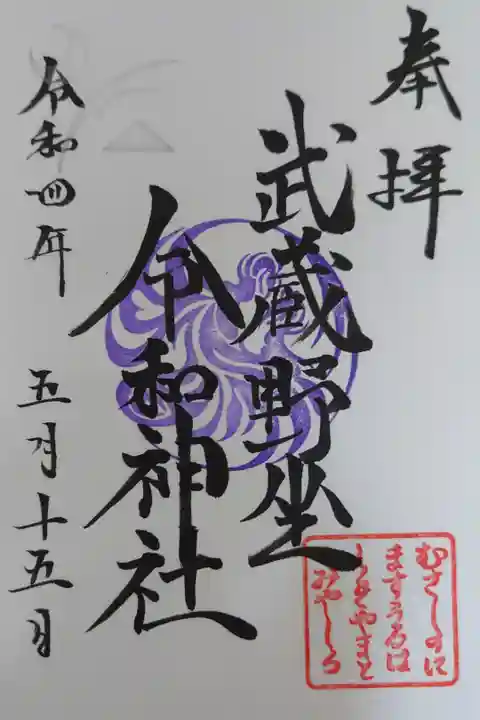 奉拝
武蔵野坐
令和神社
令和四年 五月十五日
むさしのに
ますうるは
しきやまと
みやしろ